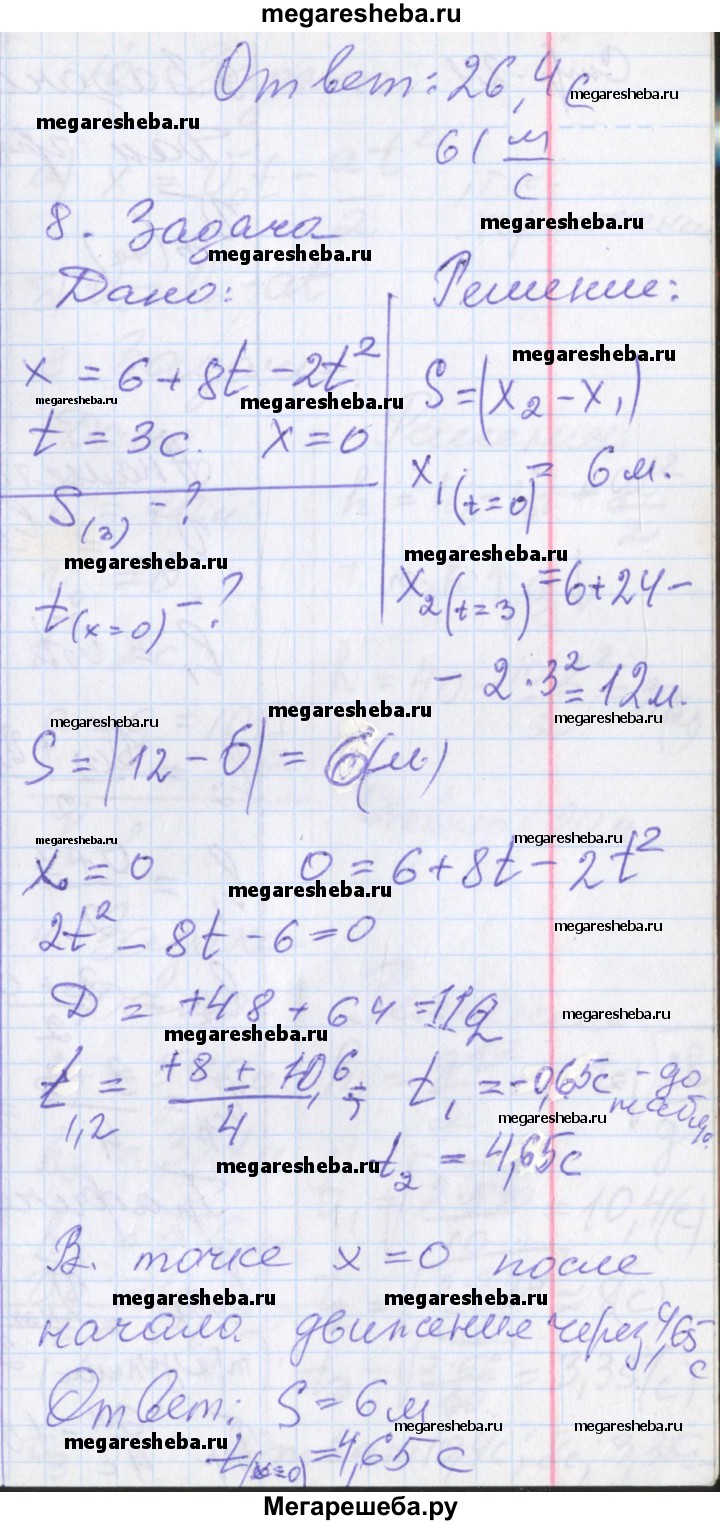 megaresheba.ru
Ответ: 26,4 с
megaresheba.ru
megaresheba.ru
61 м/с
8. Задача
megaresheba.ru
megaresheba.ru
Дано:
Решение:
x = 6 + 8t - 2t²
megaresheba.ru
megaresheba.ru
megaresheba.ru
S = (x₂ - x₁)
t = 3с. x = 0
x₁(t=0) = 6 м.
S(3) - ?
megaresheba.ru
megaresheba.ru
x₂(t=3) = 6 + 24 -
t(x=0) - ?
- 2·3² = 12 м.
megaresheba.ru
megaresheba.ru
megaresheba.ru
S = |12 - 6| = 6(м)
megaresheba.ru
megaresheba.ru
x₀ = 0 0 = 6 + 8t - 2t²
megaresheba.ru
2t² - 8t - 6 = 0
megaresheba.ru
D = +48 + 64 = 112
megaresheba.ru
megaresheba.ru
t₁,₂ = +8 ± 10,6 / 4 ; t₁ = -0,65с - до
megaresheba.ru
наблю.
t₂ = 4,65с
megaresheba.ru
В. точке x = 0 после
megaresheba.ru
megaresheba.ru
начала движение через 4,65 с
Ответ: S = 6 м
megaresheba.ru
megaresheba.ru
megaresheba.ru
t(x=0) = 4,65 с
Мегарешеба.ру